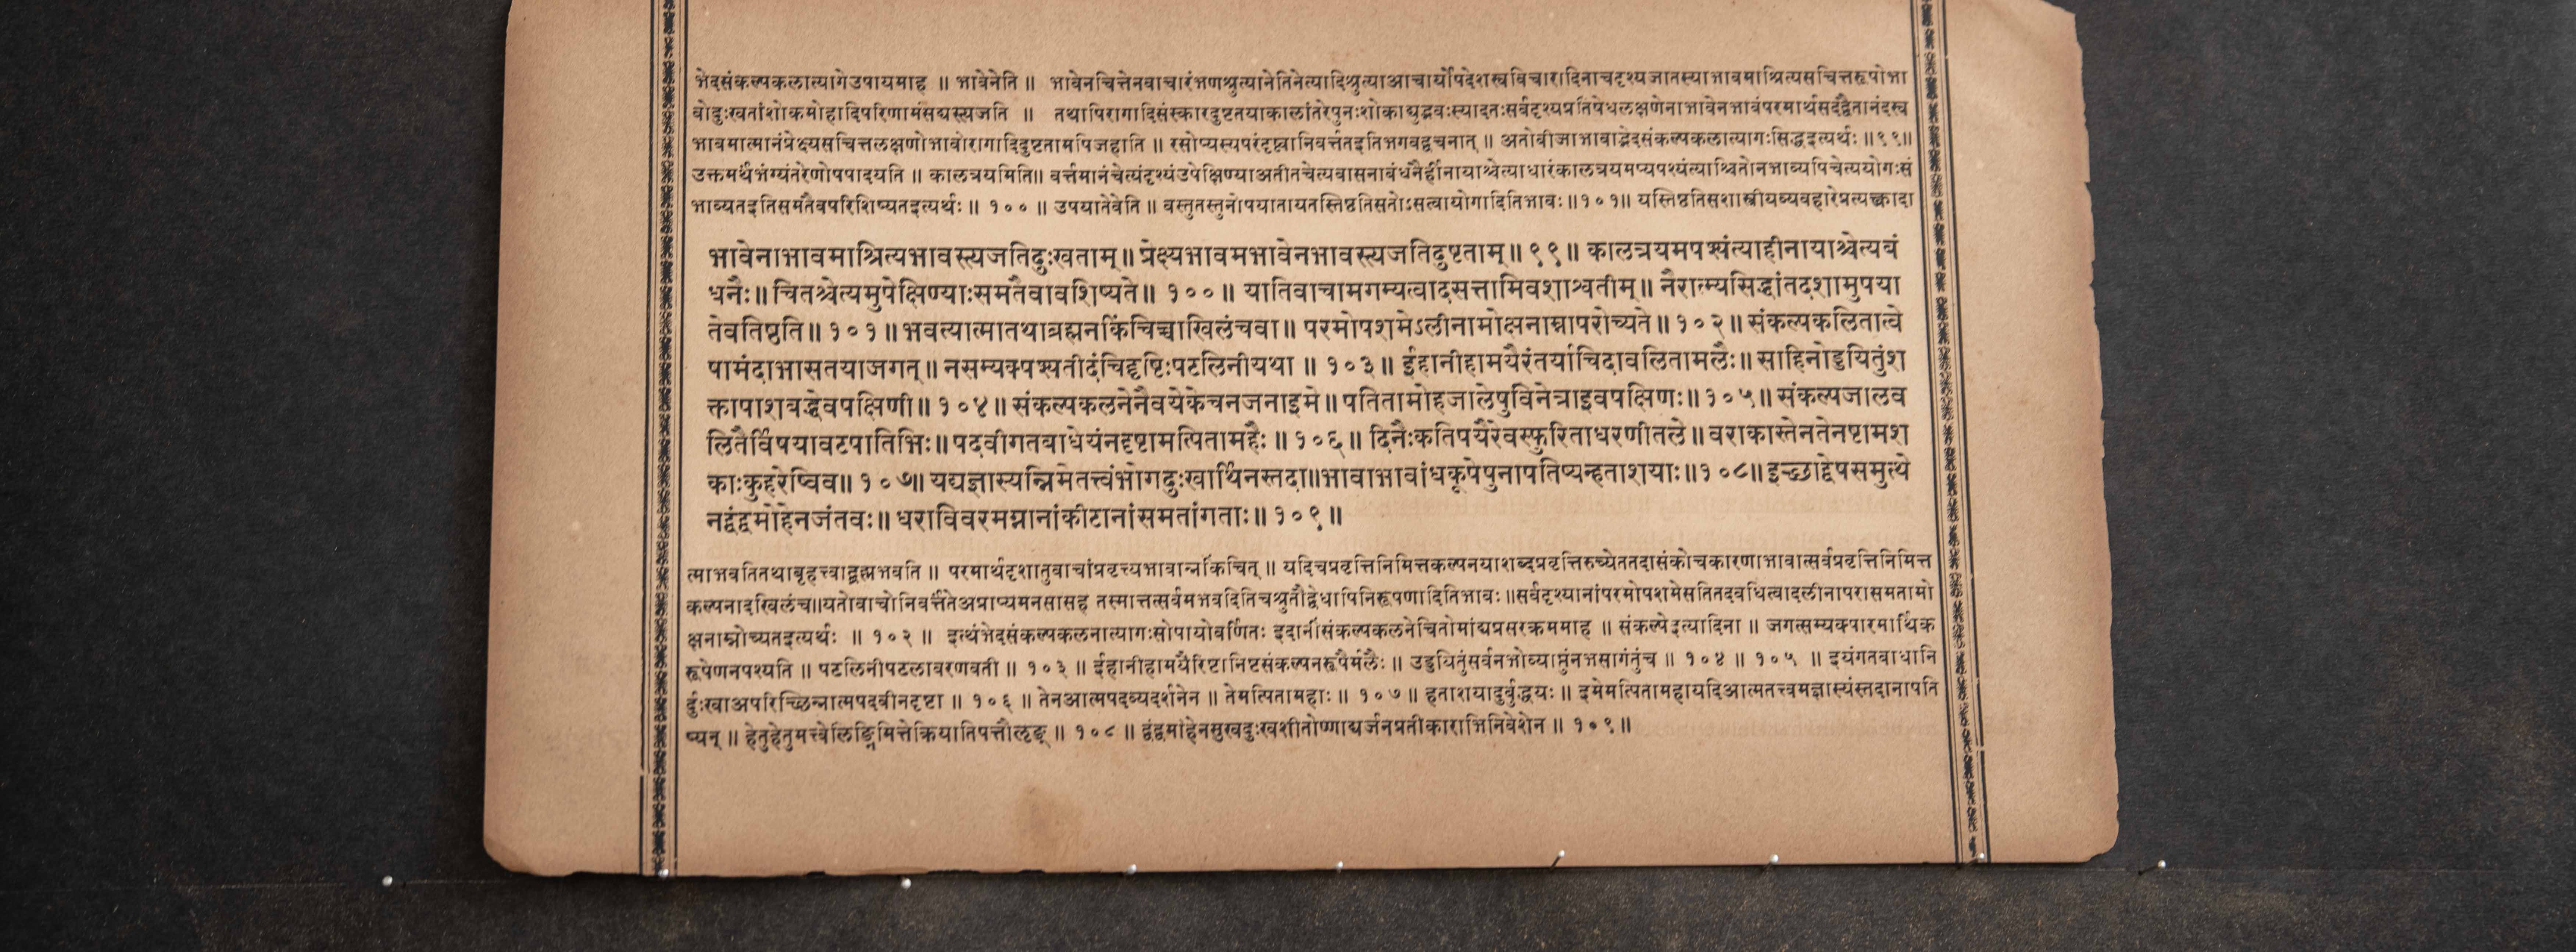 भेदसंकल्पकलात्यागेउपायमाह ॥ भावेनेति ॥ भावेनचित्तेनवाचारंभणश्रुत्यानेतिनेत्यादिश्रुत्याआचार्योपदेशस्वविचारादिनाचदृश्यजातस्याभावमाश्रित्यसचित्तरूपोभा
वोदुःखतांशोकमोहादिपरिणामंसद्यस्त्यजति ॥ तथापिरागादिसंस्कारदुष्टतयाकालांतरेपुनःशोकाद्युद्भवःस्यादतःसर्वदृश्यप्रतिषेधलक्षणेनाभावेनभावंपरमार्थसदद्वैतानंदस्व
भावमात्मानंप्रेक्ष्यसचित्तलक्षणोभावोरागादिदुष्टतामपिजहाति ॥ रसोप्यस्यपरंदृष्ट्वानिवर्त्ततइतिभगवद्वचनात् ॥ अतोबीजाभावाद्भेदसंकल्पकलात्यागःसिद्धइत्यर्थः ॥९९॥
उक्तमर्थंभंग्यंतरेणोपपादयति ॥ कालत्रयमिति॥ वर्त्तमानंचेत्यंदृश्यंउपेक्षिण्याअतीतचेत्यवासनाबंधनैर्हीनायाश्चेत्याधारंकालत्रयमप्यपश्यंत्याश्चितोनभाव्यपिचेत्ययोगःसं
भाव्यतइतिसमतैवपरिशिष्यतइत्यर्थः ॥ १०० ॥ उपयातेवेति ॥ वस्तुतस्तुनोपयातायतस्तिष्ठतिसतोऽसत्वायोगादितिभावः ॥१०१॥ यस्तिष्ठतिसशास्त्रीयव्यवहारेप्रत्यक्त्वादा
भावेनाभावमाश्रित्यभावस्त्यजतिदुःखताम् ॥ प्रेक्ष्यभावमभावेनभावस्त्यजतिदुष्टताम् ॥ ९९ ॥ कालत्रयमपश्यंत्याहीनायाश्चेत्यबं
धनैः ॥ चितश्चेत्यमुपेक्षिण्याःसमतैवावशिष्यते ॥ १०० ॥ यातिवाचामगम्यत्वादसत्तामिवशाश्वतीम् ॥ नैरात्म्यसिद्धांतदशामुपया
तेवतिष्ठति ॥ १०१ ॥ भवत्यात्मातथाब्रह्मनकिंचिच्चाखिलंचवा ॥ परमोपशमेऽलीनामोक्षनाम्नापरोच्यते ॥ १०२ ॥ संकल्पकलितात्वे
षामंदाभासतयाजगत् ॥ नसम्यक्पश्यतीदंचिद्दृष्टिःपटलिनीयथा ॥ १०३ ॥ ईहानीहामयैरंतर्याचिदावलितामलैः ॥ साहिनोड्डयितुंश
क्तापाशबद्धेवपक्षिणी ॥ १०४ ॥ संकल्पकलनेनैवयेकेचनजनाइमे ॥ पतितामोहजालेषुविनेत्राइवपक्षिणः ॥ १०५ ॥ संकल्पजालव
लितैर्विषयावटपातिभिः ॥ पदवीगतबाधेयंनदृष्टामत्पितामहैः ॥ १०६ ॥ दिनैःकतिपयैरेवस्फुरिताधरणीतले ॥ वराकास्तेनतेनष्टामश
काःकुहरेष्विव॥ १०७॥ यद्यज्ञास्यन्निमेतत्त्वंभोगदुःखार्थिनस्तदा॥भावाभावांधकूपेषुनापतिष्यन्हताशयाः॥१०८॥ इच्छाद्वेषसमुत्थे
नद्वंद्वमोहेनजंतवः ॥ धराविवरमग्नानांकीटानांसमतांगताः ॥ १०९ ॥
त्माभवतितथाबृहत्त्वाद्ब्रह्मभवति ॥ परमार्थदृशातुवाचांप्रवृत्त्यभावान्नकिंचित् ॥ यदिचप्रवृत्तिनिमित्तकल्पनयाशब्दप्रवृत्तिरुच्येततदासंकोचकारणाभावात्सर्वप्रवृत्तिनिमित्त
कल्पनादखिलंच॥यतोवाचोनिवर्त्तंतेअप्राप्यमनसासह तस्मात्तत्सर्वमभवदितिचश्रुतौद्वेधापिनिरूपणादितिभावः ॥सर्वदृश्यानांपरमोपशमेसतितदवधित्वादलीनापरासमतामो
क्षनाम्नोच्यतइत्यर्थः ॥ १०२ ॥ इत्थंभेदसंकल्पकलनात्यागःसोपायोवर्णितः इदानींसंकल्पकलनेचितोमांद्यप्रसरक्रममाह ॥ संकल्पेइत्यादिना ॥ जगत्सम्यक्पारमार्थिक
रूपेणनपश्यति ॥ पटलिनीपटलावरणवती ॥ १०३ ॥ ईहानीहामयैरिष्टानिष्टसंकल्पनरूपैर्मलैः ॥ उड्डयितुंसर्वनभोव्याप्तुंनभसागंतुंच ॥ १०४ ॥ १०५ ॥ इयंगतबाधानि
र्दुःखाअपरिच्छिन्नात्मपदवीनदृष्टा ॥ १०६ ॥ तेनआत्मपदव्यदर्शनेन ॥ तेमत्पितामहाः ॥ १०७ ॥ हताशयादुर्बुद्धयः ॥ इमेमत्पितामहायदिआत्मतत्त्वमज्ञास्यंस्तदानापति
ष्यन् ॥ हेतुहेतुमत्त्वेलिङ्निमित्तेक्रियातिपत्तौलृङ् ॥ १०८ ॥ द्वंद्वमोहेनसुखदुःखशीतोष्णाद्यर्जनप्रतीकाराभिनिवेशेन ॥ १०९ ॥